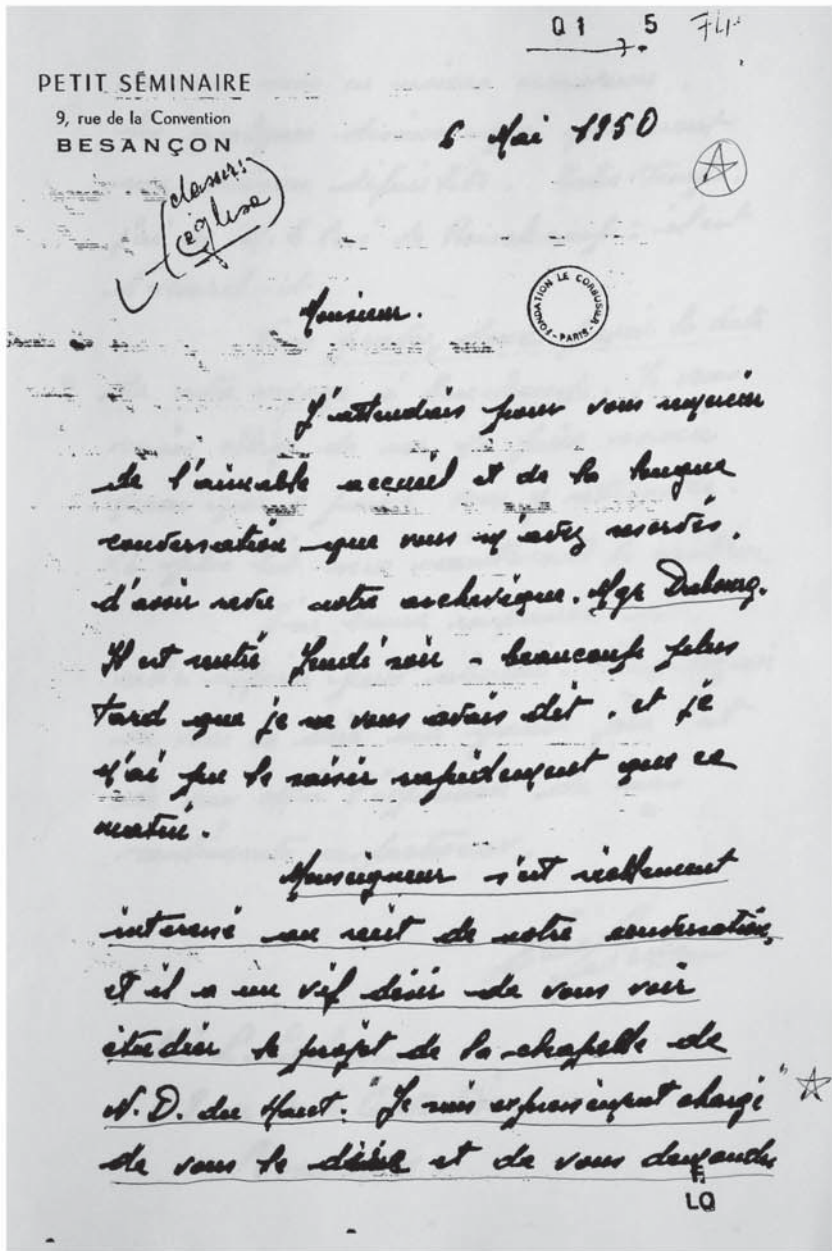 Q1 5 74
7.
PETIT SÉMINAIRE
9, rue de la Convention
BESANÇON
6 Mai 1950
(classer:
église)
FONDATION LE CORBUSIER - PARIS -
Monsieur.
J'attendais pour vous remercier
de l'aimable accueil et de la longue
conversation que vous m'avez accordés,
d'avoir revu notre archevêque. Mgr Dubourg.
Il est rentré Jeudi soir - beaucoup plus
tard que je ne vous avais dit, et je
n'ai pu le saisir rapidement que ce
matin.
Monseigneur s'est réellement
intéressé au récit de notre conversation,
et il a un vif désir de vous voir
étudier le projet de la chapelle de
N. D. du Haut. "Je suis expressément chargé"
de vous le dire et de vous demander
F.
LQ